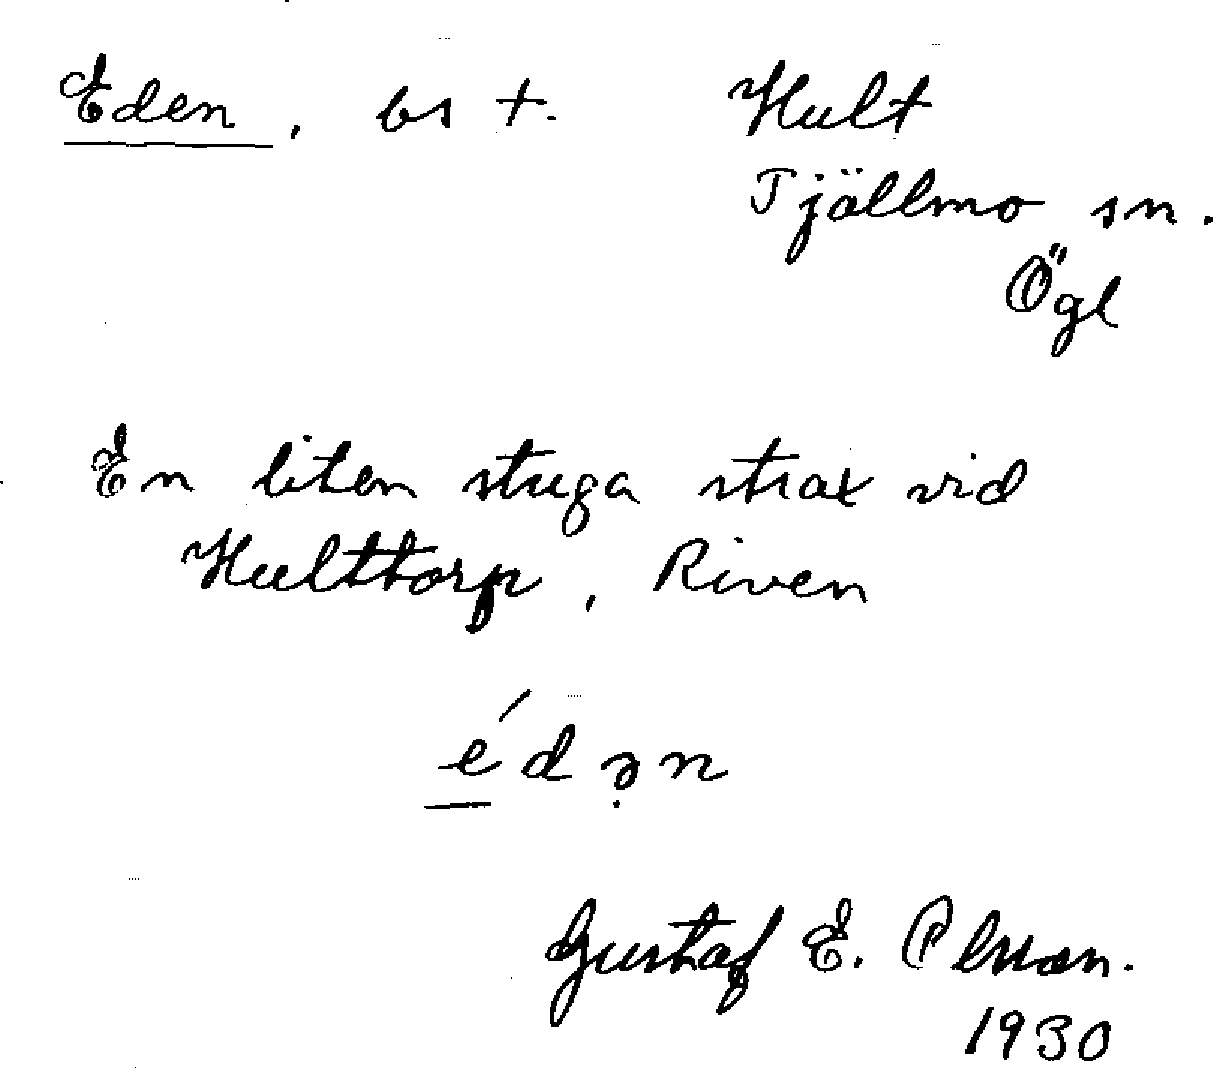 Eden, bs t. Hult
Tjällmo sn.
Ögl
En liten stuga strax vid
Hulttorp, Riven
édə̣n
Gustaf E. Olsson.
1930